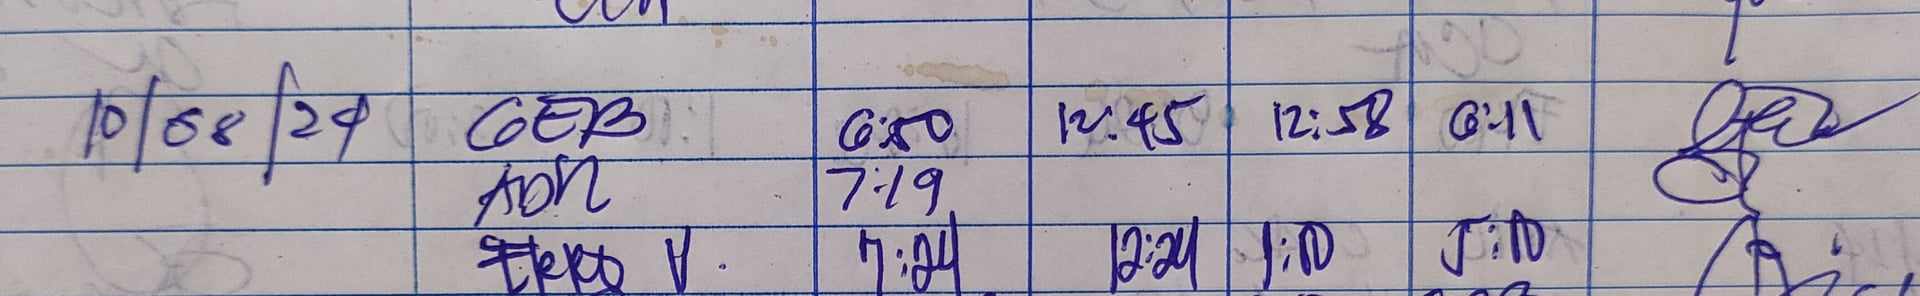 10/08/24 GEB 6:50 12:45 12:58 6:11
ADN 7:19
V. 7:24 12:24 1:10 5:10